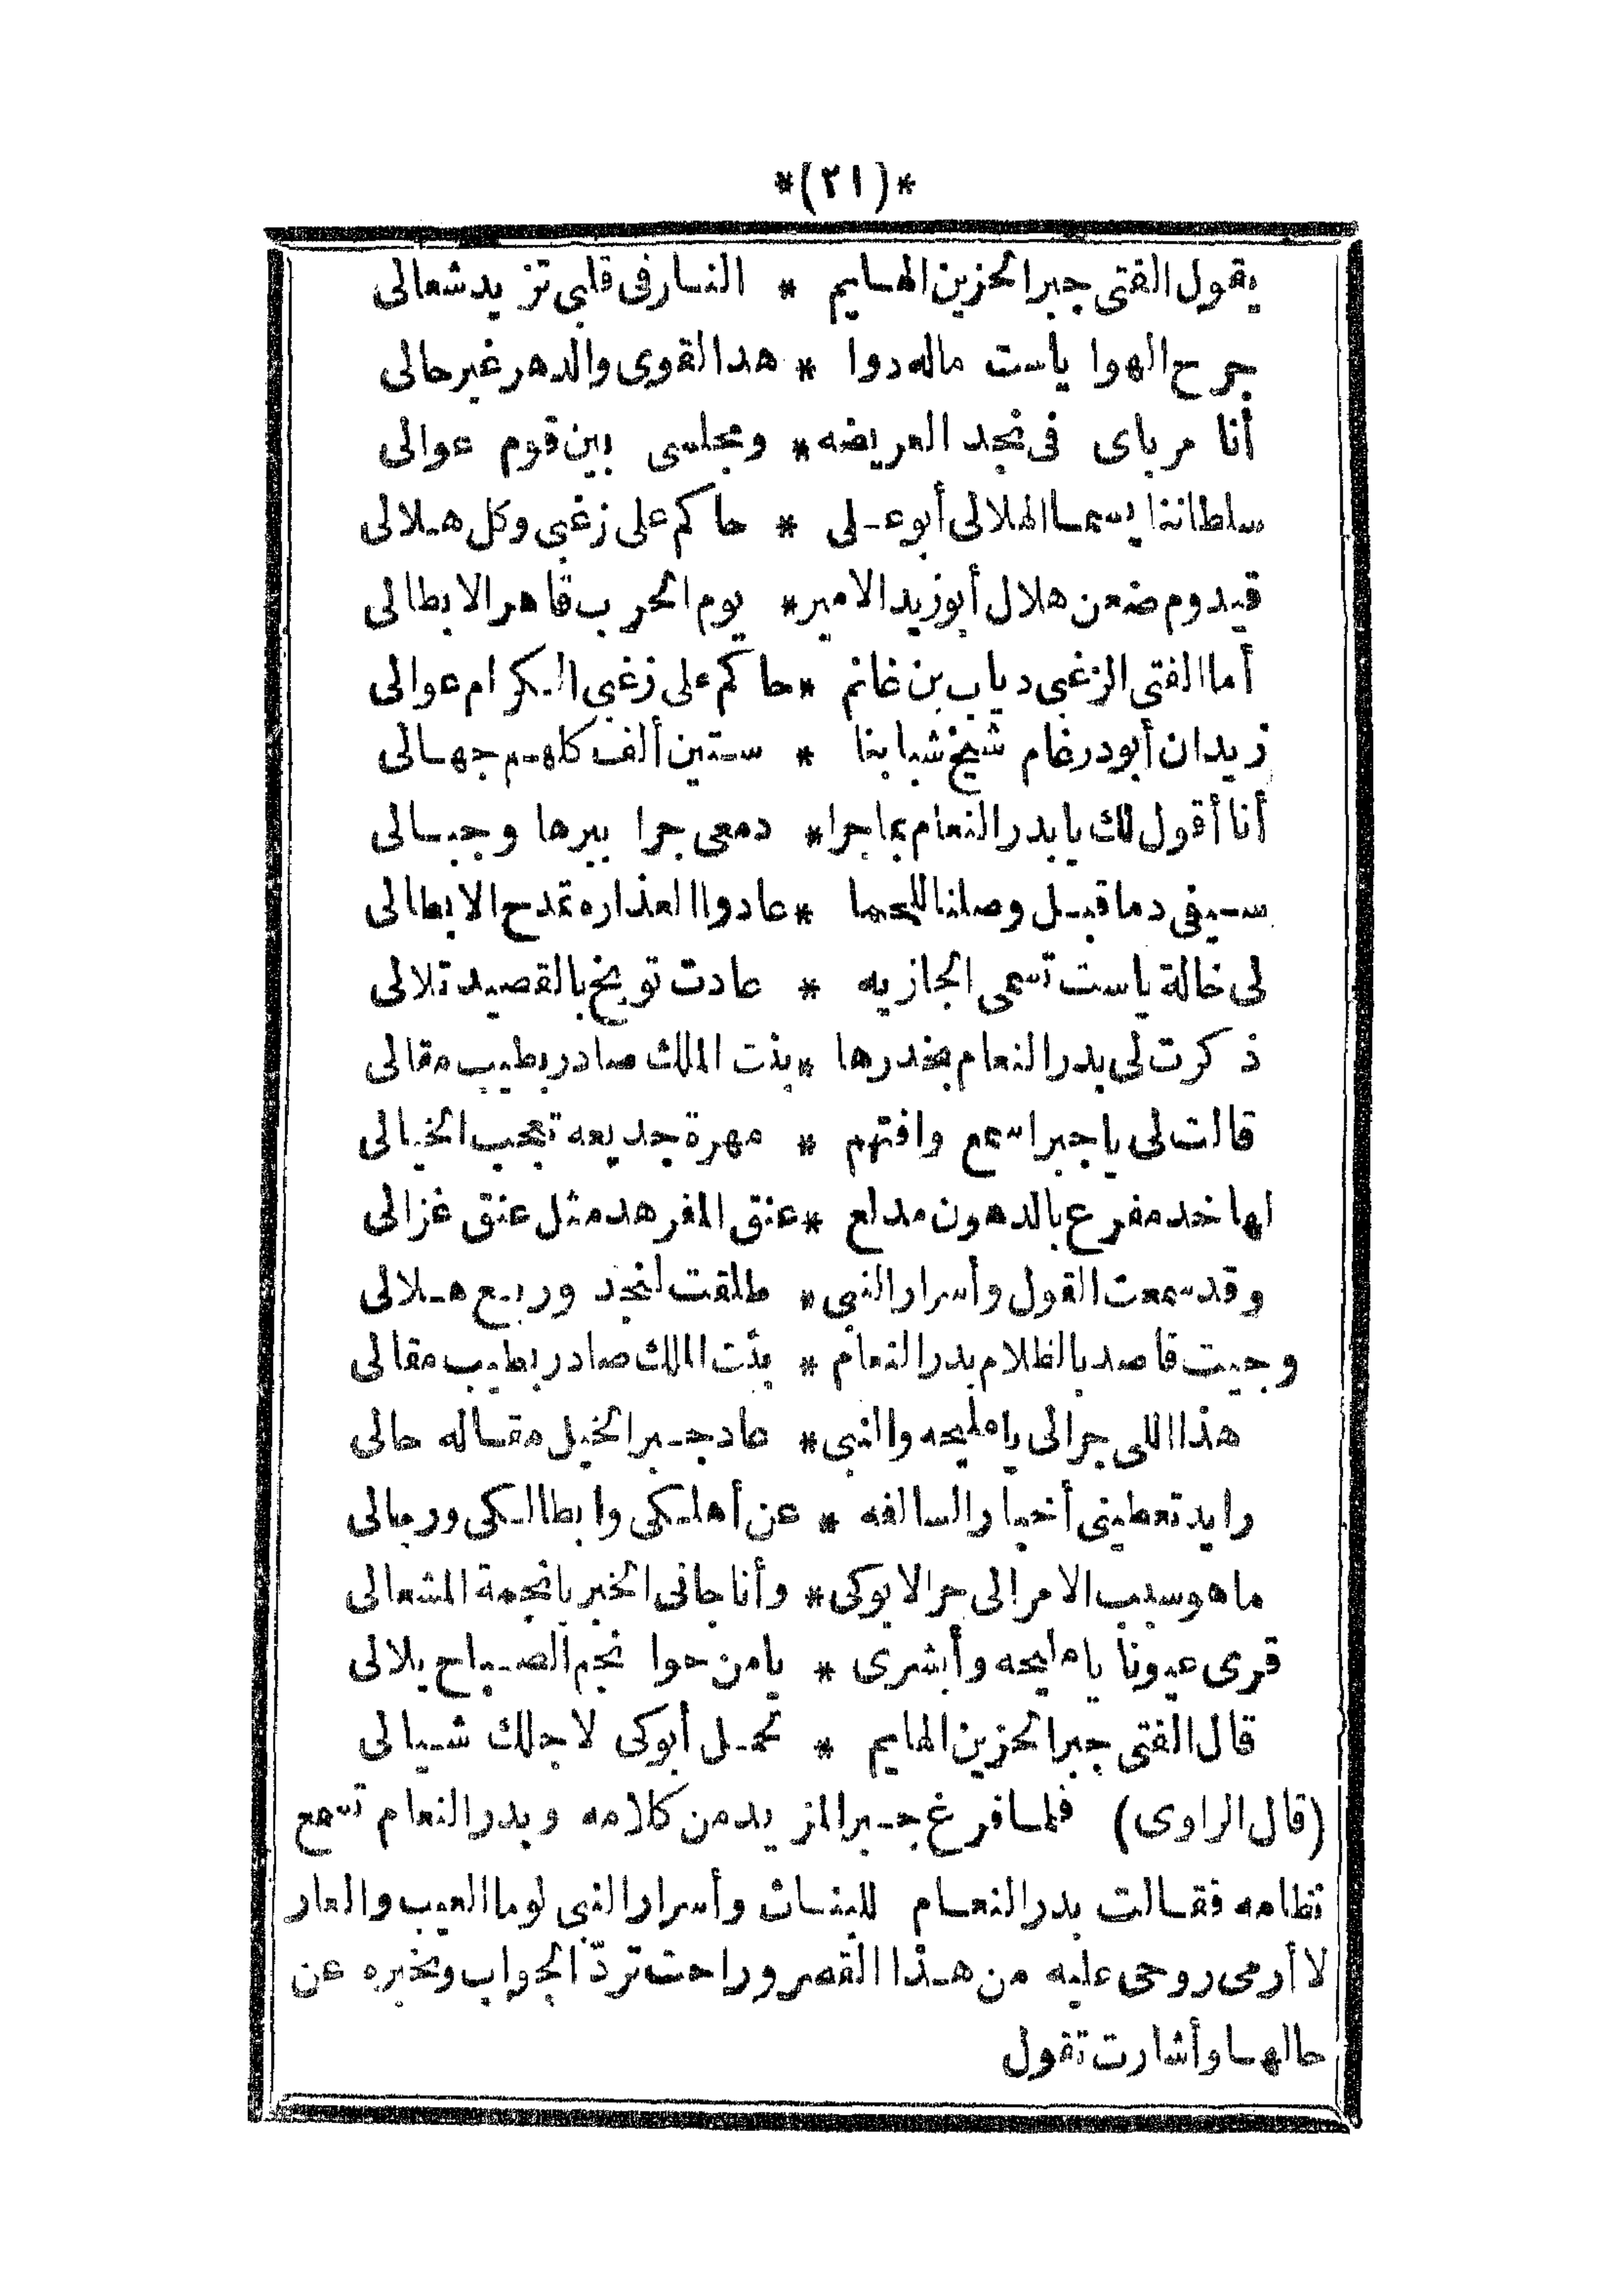 *(٢١)*
يقول الفتى جبر الحزين الهايم * النار فى قلبى تزيد شعالى
جرح الهوا ياست ماله دوا * هد القوى والدهر غير حالى
أنا مرباى فى نجد العريضه * ومجلسى بين قوم عوالى
سلطاننا يسمى الهلالى أبو على * حاكم على زغبى وكل هلالى
قيدوم ضعن هلال أبو زيد الامير * يوم الحرب قاهر الابطالى
أما الفتى الزغبى دياب بن غانم * حاكم على زغبى الكرام عوالى
زيدان أبو درغام شيخ شبابنا * ستين ألف كلهم جهالى
أنا أقول لك يا بدر النعام بما جرا * دمعى جرا بيرها وجبالى
سيفى دما قبل وصلنا للحما * عادوا العذاره تمدح الابطالى
لى خالة ياست تسمى الجازيه * عادت توبخ بالقصيد تلالى
ذكرت لى بدر النعام بخدرها * بنت الملك صادر بطيب مقالى
قالت لى يا جبر اسمع وافتهم * مهرة جديعه تعجب الخيالى
لها خد مفرع بالدهون مدلع * عنق المفرهد مثل عنق غزالى
وقد سمعت القول وأسرار النبى * طلقت لنجد وربع هلالى
وجيت قاصد بالظلام بدر النعام * بنت الملك صادر بطيب مقالى
هذا اللى جرالى يا مليحه والنبى * عاد جبر الخيل مقاله حالى
رايد تعطينى أخبار السالفه * عن أهلكى وابطالكى ورجالى
ما هو سبب الامر الى جرالابوكى * وأنا جانى الخبر يا نجمة المشعالى
قرى عيونا يا مليحه وأبشرى * يا من حوا نجم الصباح يلالى
قال الفتى جبر الحزين الهايم * تحمل أبوكى لاجلك شيالى
(قال الراوى) فلما فرغ جبر المزيد من كلامه وبدر النعام تسمع
نظامه فقالت بدر النعام للبنات وأسرار النبى لوما العيب والعار
لا أرمى روحى عليه من هذا القصر وراحت تردّ الجواب وتخبره عن
حالها وأشارت تقول